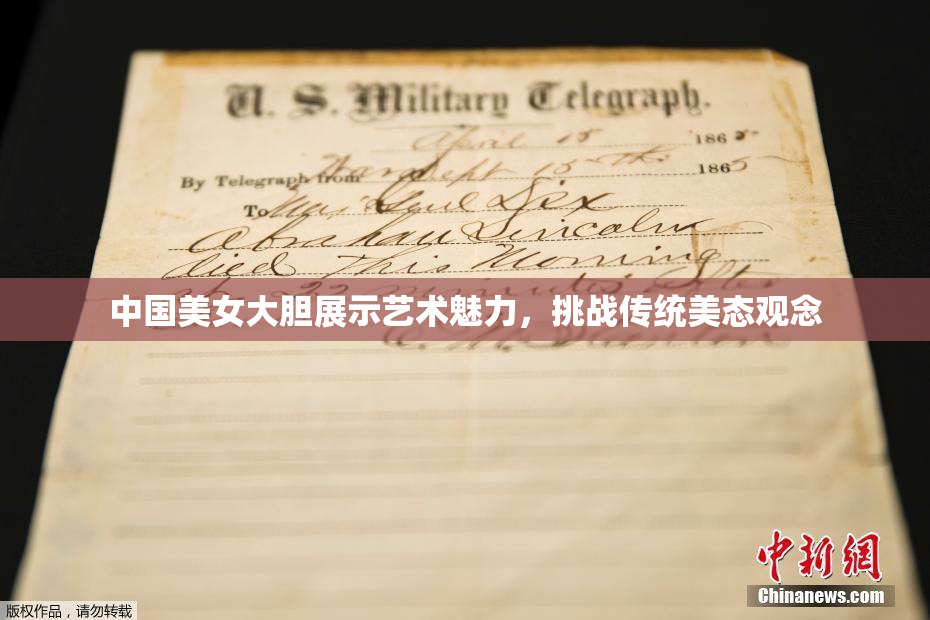 U. S. Military Telegraph.
April 15 1865
By Telegraph from War Dept 15th 1865
To Maj Genl Dix
Abraham Lincoln
died This Morning
at 22 minutes after
中国美女大胆展示艺术魅力，挑战传统美态观念
E. M. Stanton
中新网
Chinanews.com
版权作品，请勿转载